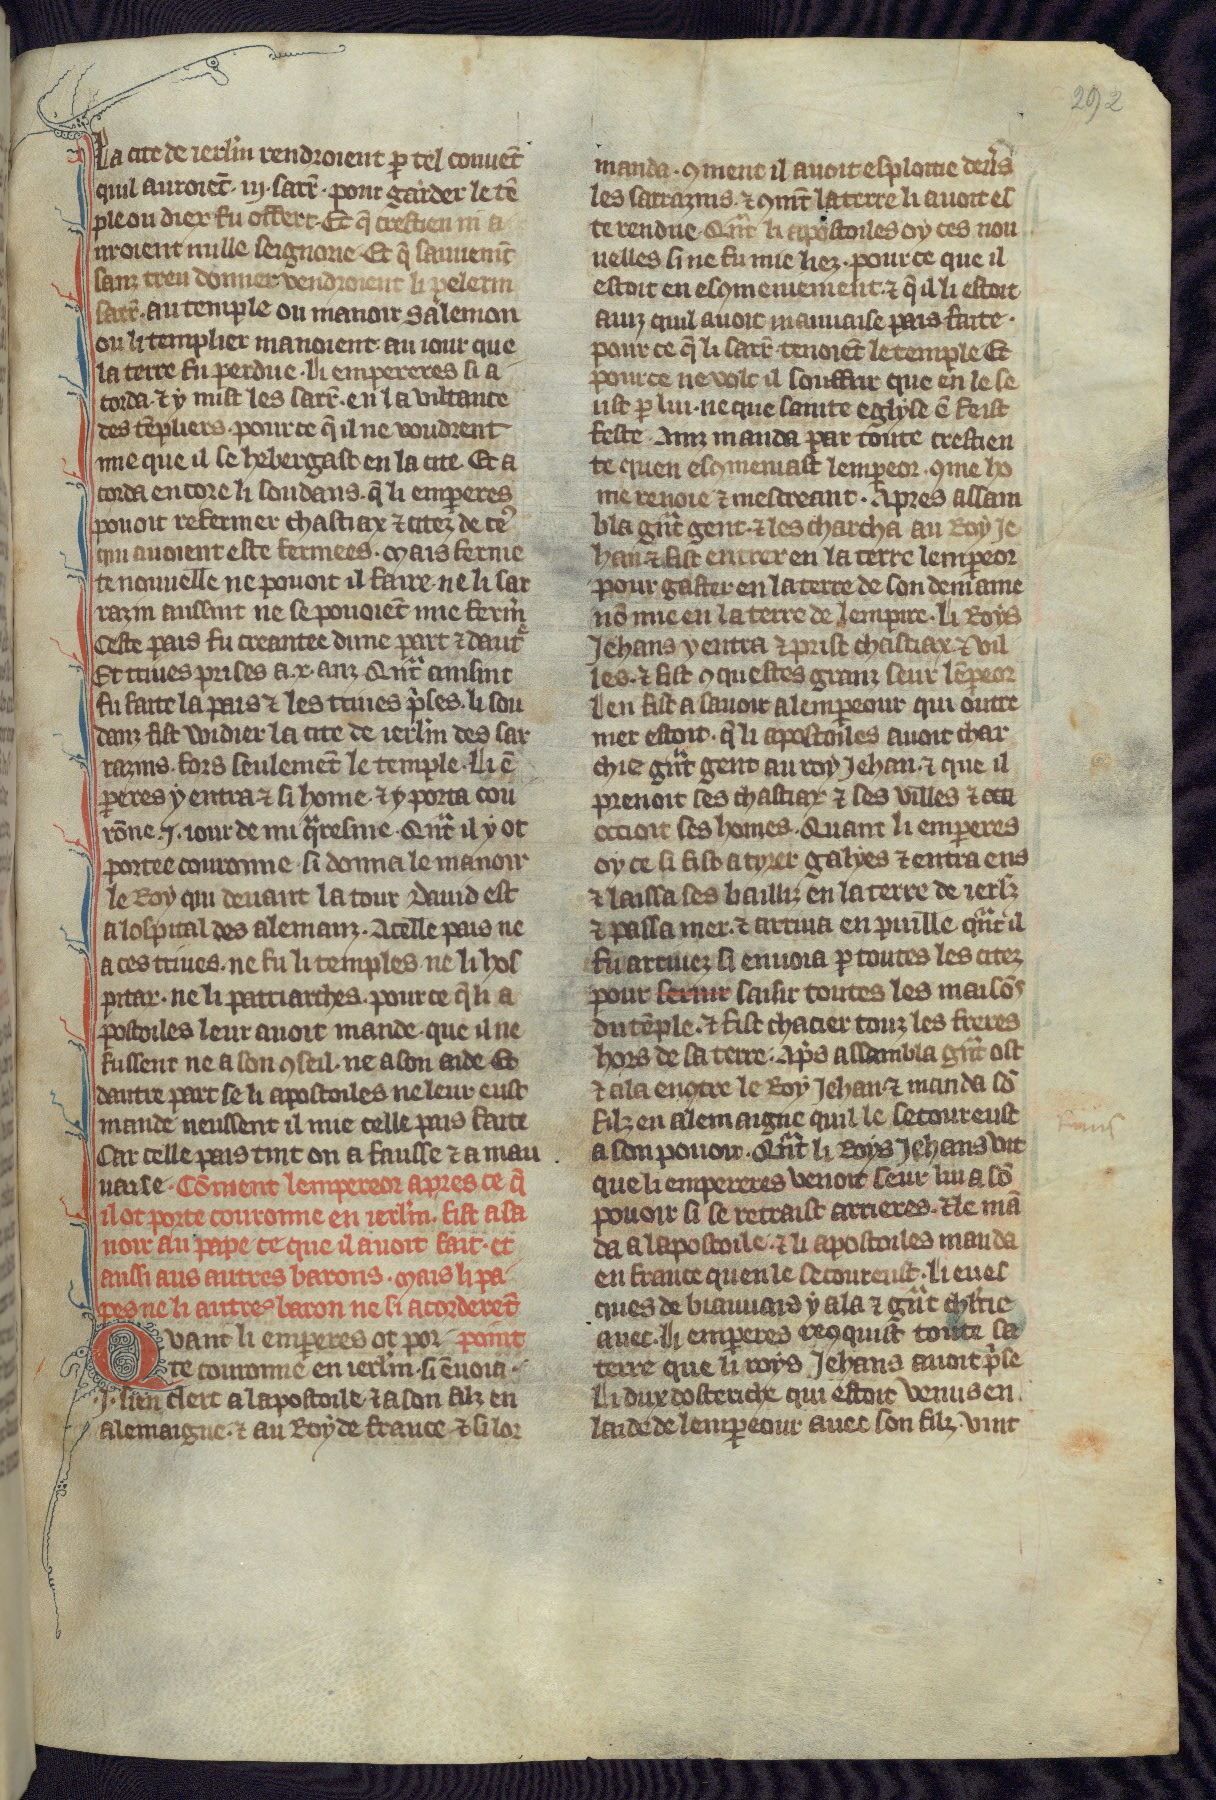 292
La cite de ierlm̄ rendroient ꝑ tel couuēt
quil auroiēt .iij. sarr̄. pour garder le tē
ple ou diex fu offert. Et q̄ crestien ni a
uroient nulle seignorie. Et q̄ sauuemt̄
sanz treu donner vendroient li pelerin
sarr̄. au temple ou manoir salemon
ou li templier manoient au iour que
la terre fu perdue. Li empereres li a
corda. ⁊ y mist les sarr̄. en la viltance
des tēpliers. pour ce q̄ il ne voudrent
mie que il se hebergast en la cite. Et a
corda encore li soudans. q̄ li emꝑeres
pouoit refermer chastiax ⁊ citez de tr̄e
qui auoient este fermees. Mais ferme
te nouuelle ne pouoit il faire. ne li sar
razin aussint ne se pouoiēt mie fermr̄
Ceste pais fu creantee dune part ⁊ dautͤ
Et triues prises a .x. anz. Qñt ainsint
fu faite la pais ⁊ les triues p̄ses. li sou
danz fist widier la cite de ierlm̄ des sar
razins. fors seulemēt le temple. Li ē
ꝑeres y entra ⁊ si home. ⁊ y porta cou
rōne .j. iour de mi q̄resme. Qñt il y ot
portee couronne. si donna le manoir
le Roy qui deuant la tour dauid est
a lospital des alemanz. A celle pais ne
a ces triues. ne fu li temples. ne li hos
pitax. ne li patriarches. pour ce q̄ li a
postoiles leur auoit mande. que il ne
fussent ne a son ꝯseil. ne a son aide. Et
dautre part se li apostoiles ne leur eust
mande neussent il mie celle pais faite
Car celle pais tint on a fausse ⁊ a mau
uaise. Cōment lempereor apres ce q̄
il ot porte couronne en ierlm̄. fist a sa
uoir au pape ce que il auoit fait. et
aussi aus autres barons. Mais li pa
pes ne li autres baron ne si acorderēt
Quant li emꝑeres ot por point
te couronne en ierlm̄. si ēuoia
.j. sien clerc a lapostoile. ⁊ a son filz en
alemaigne. ⁊ au Roy de france. ⁊ si lor
manda. ꝯment il auoit esploitie deu̾s
les sarrazins. ⁊ ꝯmt̄ la terre li auoit es
te rendue. Qñt li apostoiles oy ces nou
uelles si ne fu mie liez. pour ce que il
estoit en esꝯmeniement. ⁊ q̄ il li estoit
auiz quil auoit mauuaise pais faite.
pour ce q̄ li sarr̄. tenoiēt le temple. Et
pour ce ne volt il souffrir que en le se
ust ꝑ lui. ne que sainte eglyse ē feist
feste. Ainz manda par toute crestien
te quen esꝯmeniast lemꝑeor. ꝯme ho
me renoie ⁊ mescreant. Apres assam
bla gñt gent. ⁊ les charcha au Roy Je
han. ⁊ fist entrer en la terre lemꝑeor
pour gaster en la terre de son demaine
nō mie en la terre de lempire. Li Roys
Jehans y entra ⁊ prist chastiax ⁊ vil
les. ⁊ fist ꝯquestes granz seur lēꝑeor
Len fist a sauoir a lemꝑeour qui outre
mer estoit. q̄ li apostoiles auoit char
chie gñt gent au roy Jehan. ⁊ que il
prenoit ses chastiax ⁊ ses villes ⁊ occi
occioit ses homes. Quant li emꝑeres
oy ce si fist atyrer galyes ⁊ entra ens
⁊ laissa ses bailliz en la terre de ierlm̄
⁊ passa mer. ⁊ arriua en puille. qñt il
fu arriuez si enuoia ꝑ toutes les citez
pour seruir saisir toutes les maisōs
du tēple. ⁊ fist chacier touz les freres
hors de sa terre. Ap̄s assambla gñt ost
⁊ ala enꝯtre le Roy Jehan ⁊ manda sō
filz en alemaigne quil le secoureust
a son pouoir. Qñt li Roys Jehans vit
que li empereres venoit seur lui a sō
pouoir si se retraist arrieres. Ne mā
da a lapostoile. ⁊ li apostoiles manda
en france quen le secoureust. Li eues
ques de biauuais y ala ⁊ gñt chl̄rie
auec. Li emꝑeres reꝯquist toute sa
terre que li roys Jehans auoit p̄se
Li dux dosteriche qui estoit venus en
laide de lemꝑeour auec son filz. vint